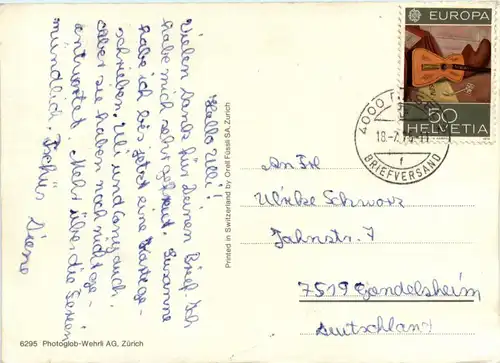 Hallo Ulli!
Vielen Dank für Deinen Brief. Ich
habe mich sehr gefreut. Susanne
habe ich bis jetzt eine Karte ge-
schrieben. Uli und Conny auch,
aber sie haben noch nicht ge-
antwortet. Mehr über die Ferien
mündlich. Tschüs
6295 Photoglob-Wehrli AG, Zürich
Printed in Switzerland by Orell Füssli SA, Zürich
EUROPA
50
HELVETIA
4000
18.-7.
BRIEFVERSAND
f
An Frl.
Ulrike Schwarz
Jahnstr. 7
7519 Gondelsheim
Deutschland